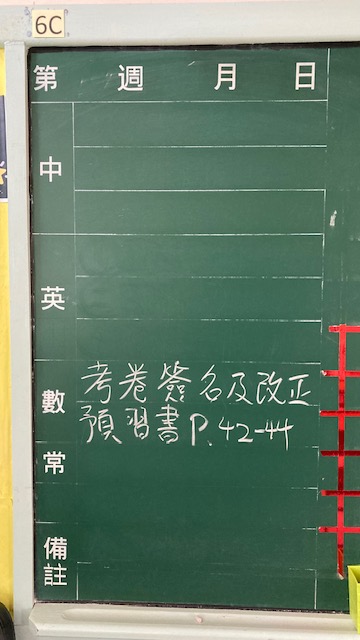 6C
第 週 月 日
中
英
數
考卷簽名及改正
預習書P.42-44
常
備註